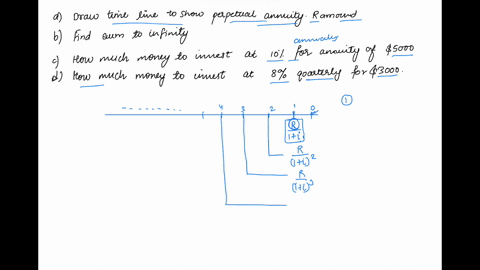 a) Draw time line to show perpetual annuity. R amound
b) Find sum to infinity
annually
c) How much money to invest at 10% for anuity of $5000
d) How much money to invest at 8% quarterly for $3000.
①
4 3 2 1 0
R
1+i
R
(1+i)²
R
(1+i)³